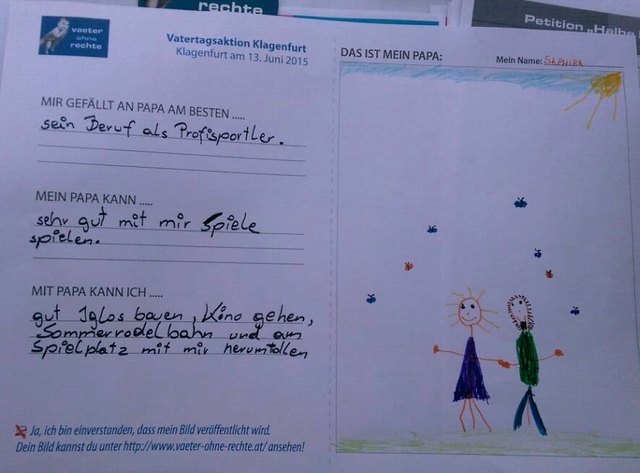 rechte
Petition „Halbe
vaeter
ohne
rechte
Vatertagsaktion Klagenfurt
Klagenfurt am 13. Juni 2015
DAS IST MEIN PAPA:
Mein Name: SAPHIRA
MIR GEFÄLLT AN PAPA AM BESTEN .....
sein Beruf als Profisportler.
MEIN PAPA KANN .....
sehr gut mit mir Spiele
spielen.
MIT PAPA KANN ICH .....
gut Iglos bauen, Kino gehen,
Sommerrodelbahn und am
Spielplatz mit mir herumtollen
Ja, ich bin einverstanden, dass mein Bild veröffentlicht wird.
Dein Bild kannst du unter http://www.vaeter-ohne-rechte.at/ ansehen!